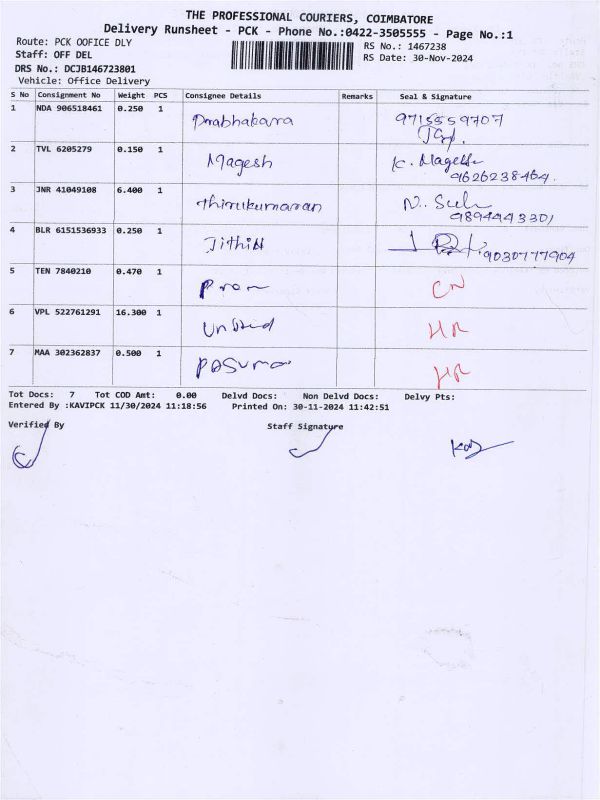 THE PROFESSIONAL COURIERS, COIMBATORE
Delivery Runsheet - PCK - Phone No.:0422-3505555 - Page No.:1
Route: PCK OOFICE DLY RS No.: 1467238
Staff: OFF DEL RS Date: 30-Nov-2024
DRS No.: DCJB146723801
Vehicle: Office Delivery
S No Consignment No Weight PCS Consignee Details Remarks Seal & Signature
1 NDA 906518461 0.250 1 Prabhakara 9715559707
2 TVL 6205279 0.150 1 Magesh K. Magesh
9626238464.
3 JNR 41049108 6.400 1 Thirukumaran N.
9894443301
4 BLR 6151536933 0.250 1 Jithin 9030777904
5 TEN 7840210 0.470 1 CN
6 VPL 522761291 16.300 1 United HR
7 MAA 302362837 0.500 1 HR
Tot Docs: 7 Tot COD Amt: 0.00 Delvd Docs: Non Delvd Docs: Delvy Pts:
Entered By :KAVIPCK 11/30/2024 11:18:56 Printed On: 30-11-2024 11:42:51
Verified By Staff Signature